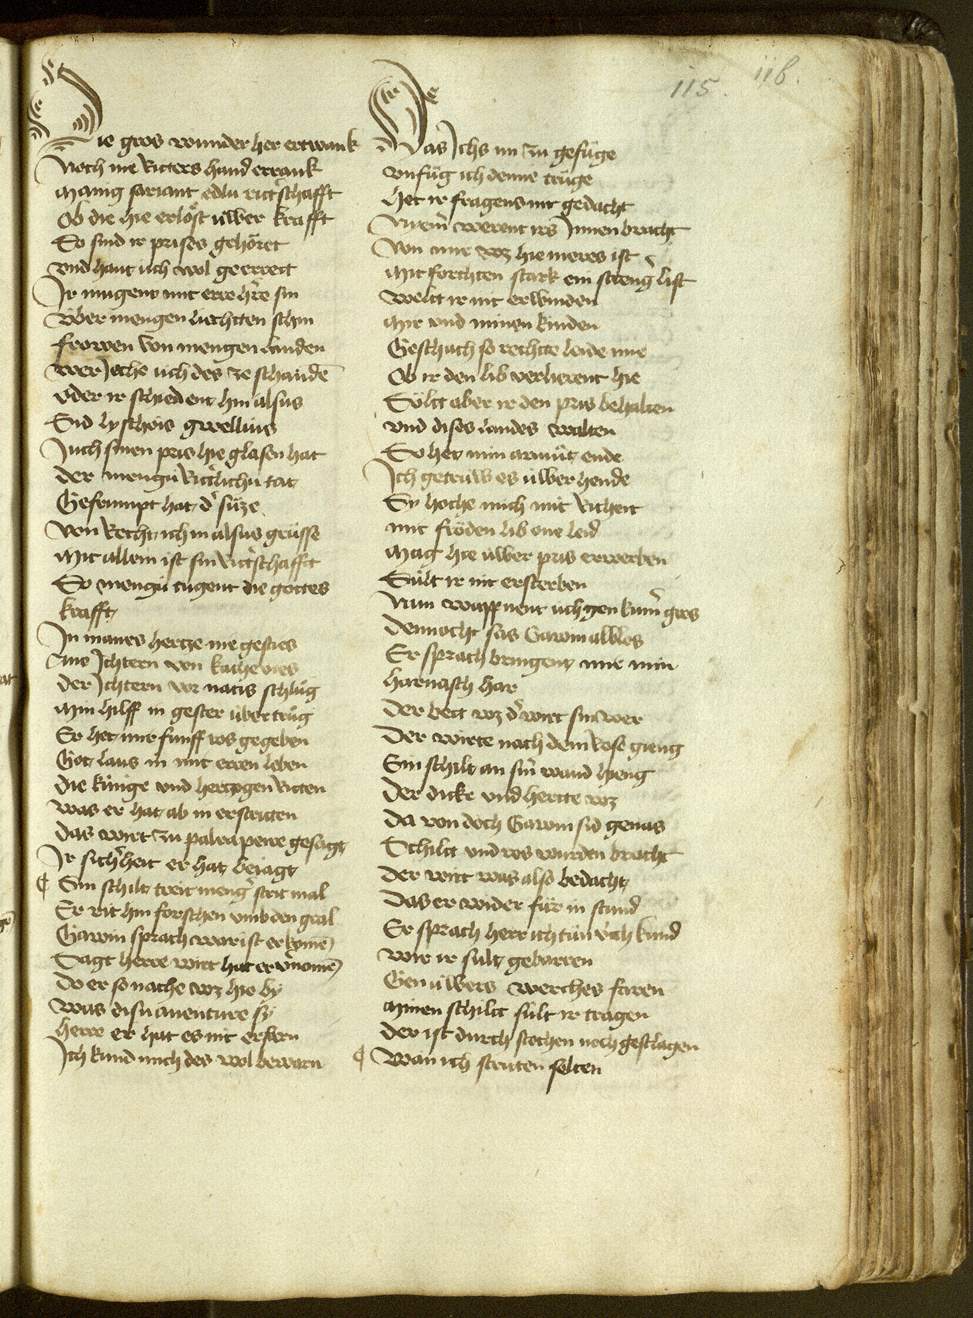 115. 116.
Die gros wunder her ertwank
Noch nie Ritters hand errank
Manig sariant edlu ritt'schafft
Ob die hie erlöst uwer krafft
So sind ir prises gehöret
vnd hant uch wol geerett
Ir mugent mit erre h're sin
Vber mengen liechtten schin
frowen von mengen landen
wer Jeche uch des ze schande
oder ir schiedent hin alsus
Sid lyschois gwellius
Juch sinen pris hie glasen hat
der mengu Ritt'lichu tat
Gefrumpt hat d' suze
Von Recht ich in alsus grusse
Mit allem ist sin Ritt'schafft
So mengu tugent die gottes
krafft
In manes hertze nie gesties
Ane Ichtern von kaheuies
der Ichtern vor natis schlug
Min hilff in gester uber trug
Er het mir funff ros gegeben
Got laus in mit eren leben
die kunge und hertzogen Ritten
was er hat ab in erstritten
das wirt zu palrapeire gesagt
Ir sich'heit er hat beiagt
¶ Sin schilt treit meng' strit mal
Er rit hin forschen vmb den gral
Gawin sprach war ist er komē
Sagt herre wirt hat er v'nomē
Do er so nache wz hie by
was disu auenture sy
herre er hat es nit erfarn
Ich kund mich des wol bewarn
Das Ichs im zu gefuge
vnfug ich denne truge
Het ir fragens nit gedacht
Niem' werent irs Innen bracht
Von mir wz hie meres ist
Mit forchten stark ein streng list
Welt ir nit erwinden
Mir vnd minen kinden
Geschach so rechtte leide nie
Ob ir den lib verlierent hie
Sölt aber ir den pris behalten
vnd dises landes walten
So het min armut ende
Ich getruw es uwer hende
Sy hoche mich mit Richeit
mit fröden lib one leid
Mag hie uwer pris erwerben
Sult ir nit ersterben
Nun wappnent uch gen kum' gros
Dennocht sas Gawin alblos
Er sprach bringent mir min
harnasch har
Der bett wz d' wirt sin wer
Der wirte nach dem Rose gieng
Ein schilt an sin' wand hieng
Der dicke vnd hertte wz
Da von doch Gawin sid genas
Schilt vnd ros wurden bracht
Der wirt was also bedacht
Das er wider für in stund
Er sprach herr ich tün üch kund
Wie ir sült gebarren
Gen uwers verches faren
Minen schilt sült ir tragen
der ist durch stochen noch geschlagen
¶ Wan ich striten selten